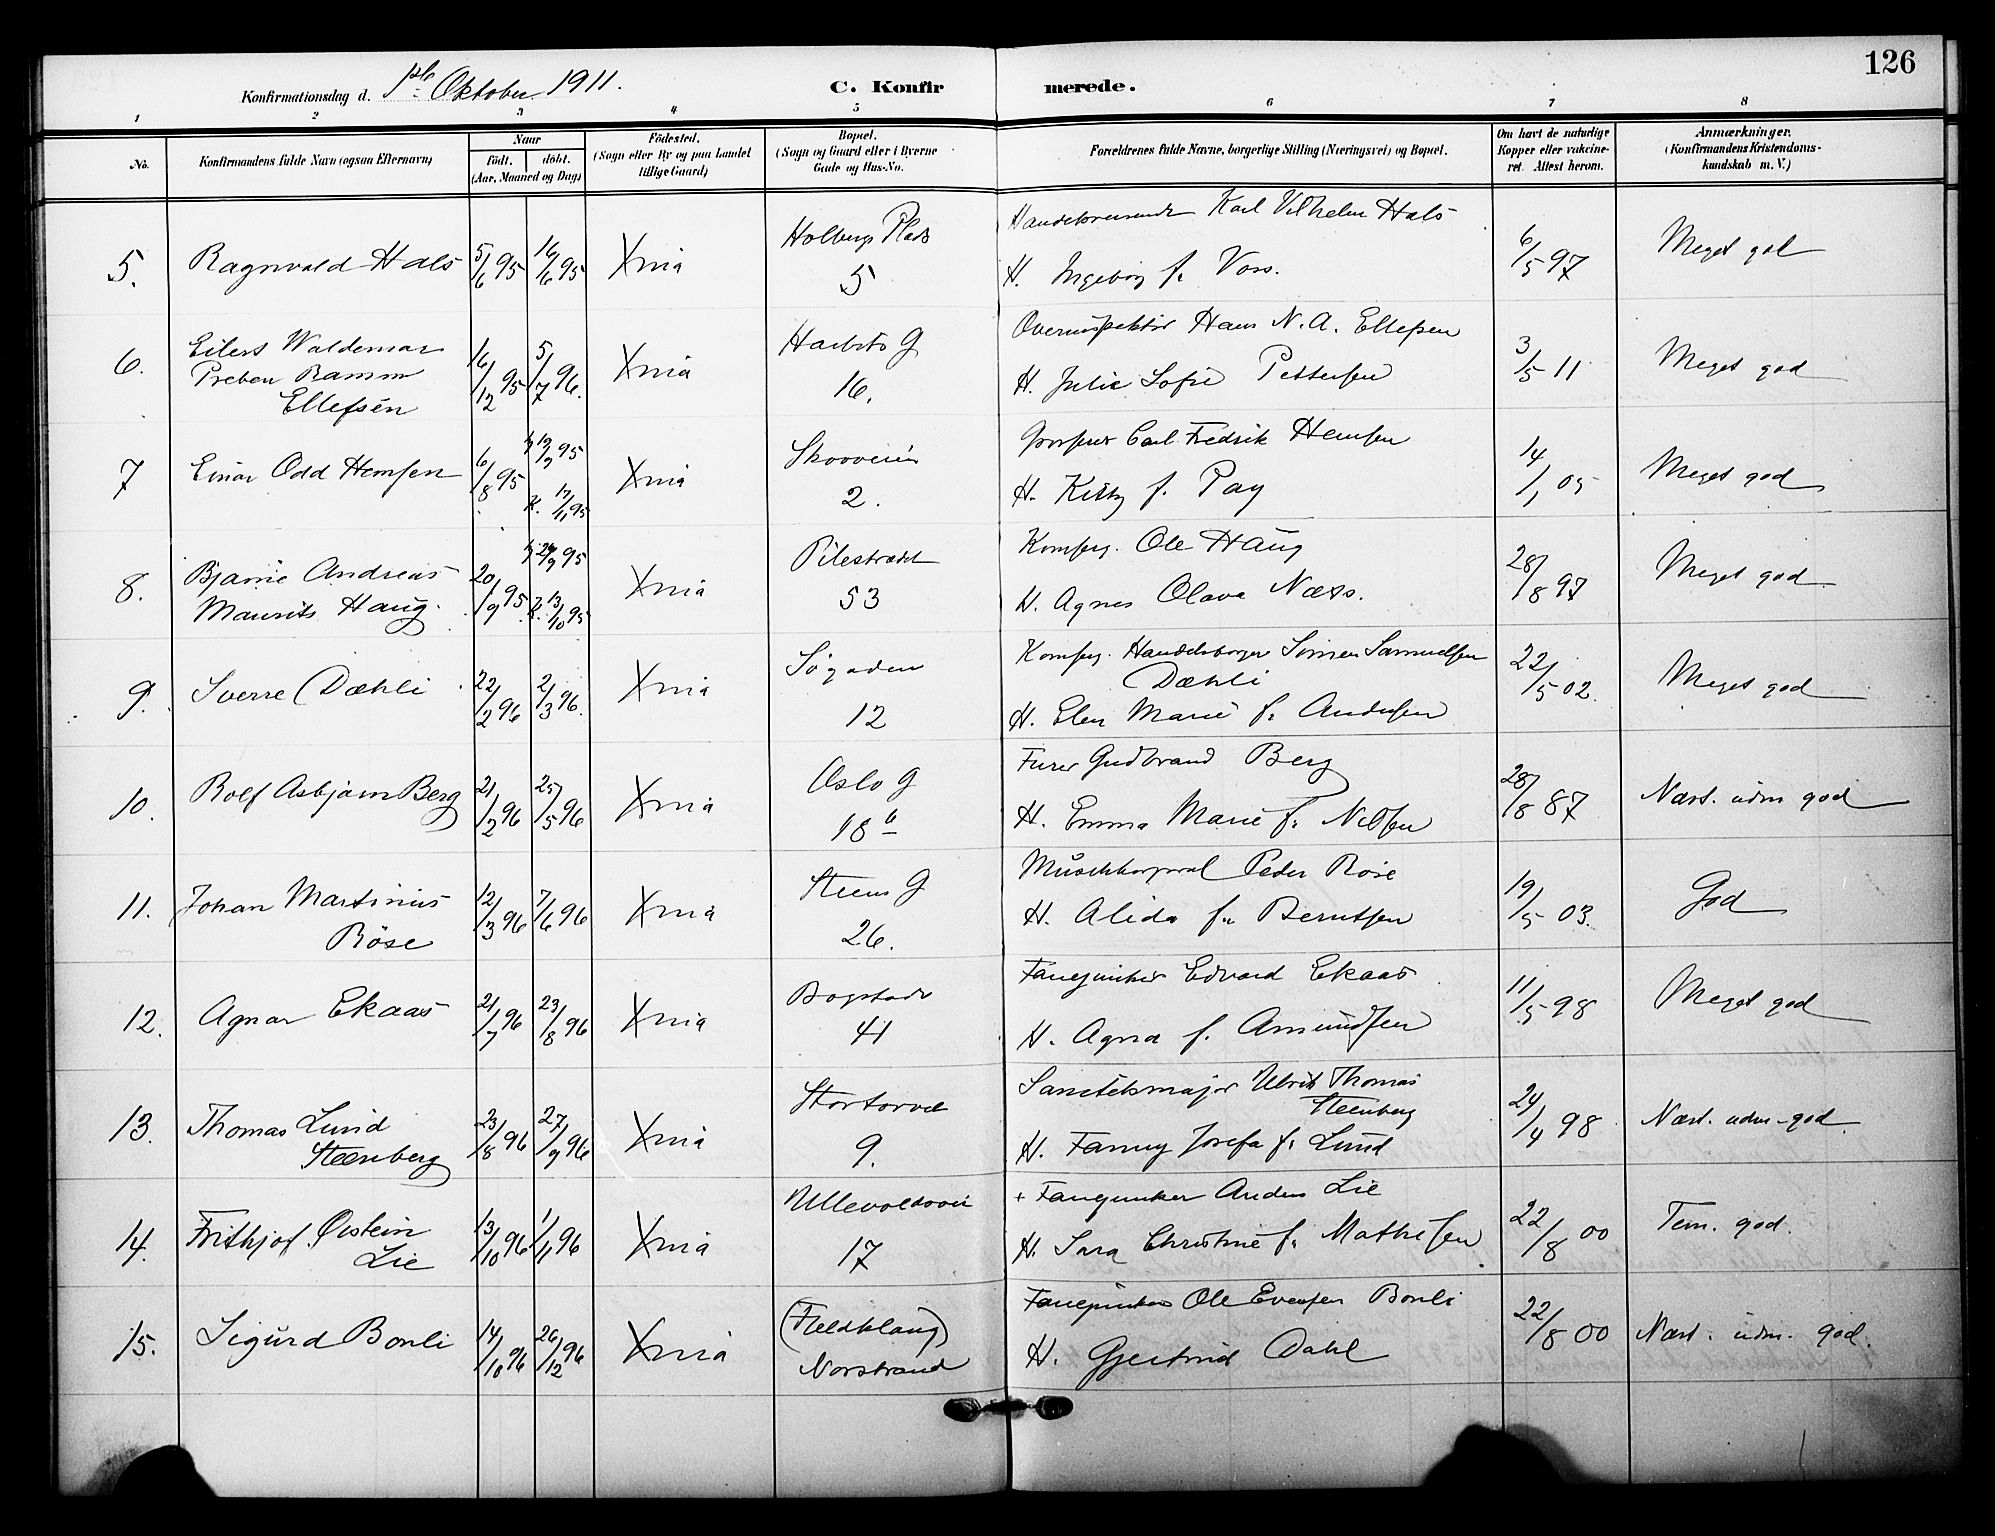 126
Konfirmationsdag d. 1ste Oktober 1911.
C. Konfirmerede.
1 2 3 4 5 6 7 8
No.
Konfirmandens fulde Navn (ogsaa Efternavn)
Naar
født. døbt.
(Aar, Maaned og Dag)
Födested.
(Sogn eller By og paa Landet
tillige Gaard)
Bopæl.
(Sogn og Gaard eller i Byerne
Gade og Hus-No.
Forældrenes fulde Navne, borgerlige Stilling (Næringsvei) og Bopæl.
Om havt de naturlige
Kopper eller vakcine-
ret. Attest herom.
Anmærkninger.
(Konfirmandens Kristendoms-
kundskab m. V.)
5. Ragnvald Hals 5/6 95 16/6 95 Xnia Holbergs Plads
5
Handelsreisende Karl Vilhelm Hals
H. Ingeborg f. Voss.
6/5 97 Meget god
6. Eilert Waldemar
Preben Ramm
Ellefsen
16/12 95 5/7 96. Xnia
G
16.
Overinspektør Hans N. A. Ellefsen
H. Julie Sofie Pettersen
3/5 11 Meget god
7 Einar Odd Hemsen 6/8 95 95
K. 17/11 95
Xnia Skovveien
2.
Grosserer Carl Fredrik Hemsen
H. Kitty f. Pay
14/1 05 Meget god
8. Bjarne Andreas
Maurits Haug.
20/9 95 95
K. 13/10 95
Xnia Pilestrædet
53
Komserg. Ole Haug
H. Agnes Olava Næss.
28/8 97 Meget god
9. Sverre Dæhli 22/2 96 2/3 96. Xnia Søgaden
12
Handelsborger Simen Samuelsen
Dæhli
H. Elen Marie f. Andersen
22/5 02. Meget god
10. Rolf Asbjørn Berg 21/2 96 25/5 96 Xnia Oslo G
18 b
Furer Gudbrand Berg
H. Emma Marie f. Nilsen
28/8 87 Næst. udm god
11. Johan Martinius
Røse
12/3 96 7/6 96 Xnia Steens G
26.
Musikkorporal Peder Røse
H. Alida f. Berntsen
19/5 03. God
12. Agnar Ekaas 21/7 96 23/8 96 Xnia Bogstadv
41
Fanejunker Edvard Ekaas
H. Agna f. Amundsen
11/5 98 Meget god
13. Thomas Lund
Steenberg
23/8 96 27/9 96 Xnia Stortorvet
9.
Sanitetsmajor Ulrik Thomas
Steenberg
H. Fanny Josefa f. Lund
24/4 98 Næst. udm - god.
14. Frithjof Øistein
Lie
13/10 96 1/11 96 Xnia Ullevoldsvei
17
+ Fanejunker Anders Lie
H. Sara Christine f. Mathisen
22/8 00 Tem. god.
15. Sigurd Bonli 14/10 96 26/12 96 Xnia (Fieldklang)
Norstrand
Fanejunker Ole Evensen Bonli
H. Gjertrud Dahl
22/8 00 Næst. udm. god.